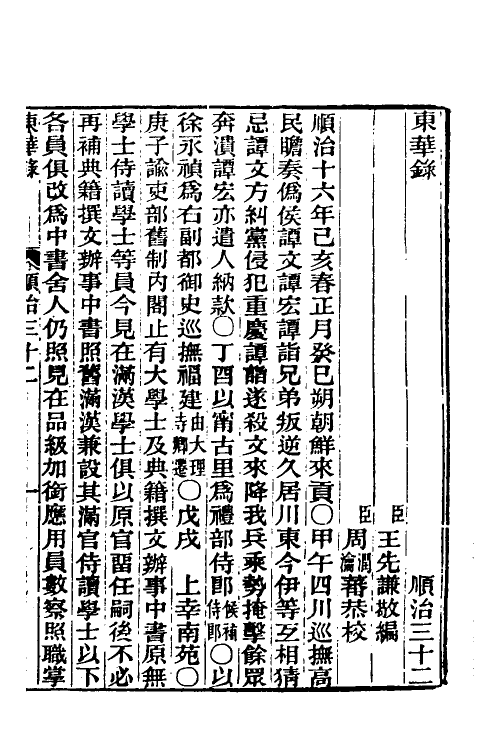 東華錄 順治三十二
臣王先謙敬編
臣周潤蕃 周瀹蕃恭校
順治十六年己亥春正月癸巳朔朝鮮來貢○甲午四川巡撫高
民瞻奏偽侯譚文譚宏譚詣兄弟叛逆久居川東今伊等互相猜
忌譚文方糾黨侵犯重慶譚詣遂殺文來降我兵乘勢掩擊餘眾
奔潰譚宏亦遣人納款○丁酉以甯古里為禮部侍郎候補侍郎○以
徐永禎為右副都御史巡撫福建由大理寺卿遷○戊戌 上幸南苑○
庚子諭吏部舊制內閣止有大學士及典籍撰文辦事中書原無
學士侍讀學士等員今見在滿漢學士俱以原官畱任嗣後不必
再補典籍撰文辦事中書照舊滿漢兼設其滿官侍讀學士以下
各員俱改為中書舍人仍照見在品級加銜應用員數察照職掌
東華錄 順治三十二 一